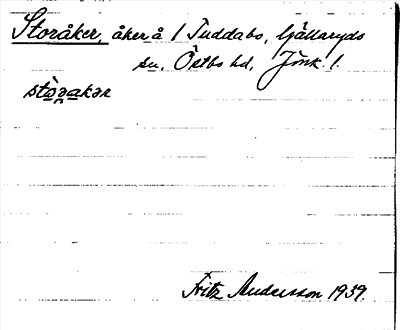 Storåker, åker å 1 Tuddabo, Gällaryds
sn. Östbo hd, Jönk. l.
stò̱ra̱kər
Fritz Andersson 1939.